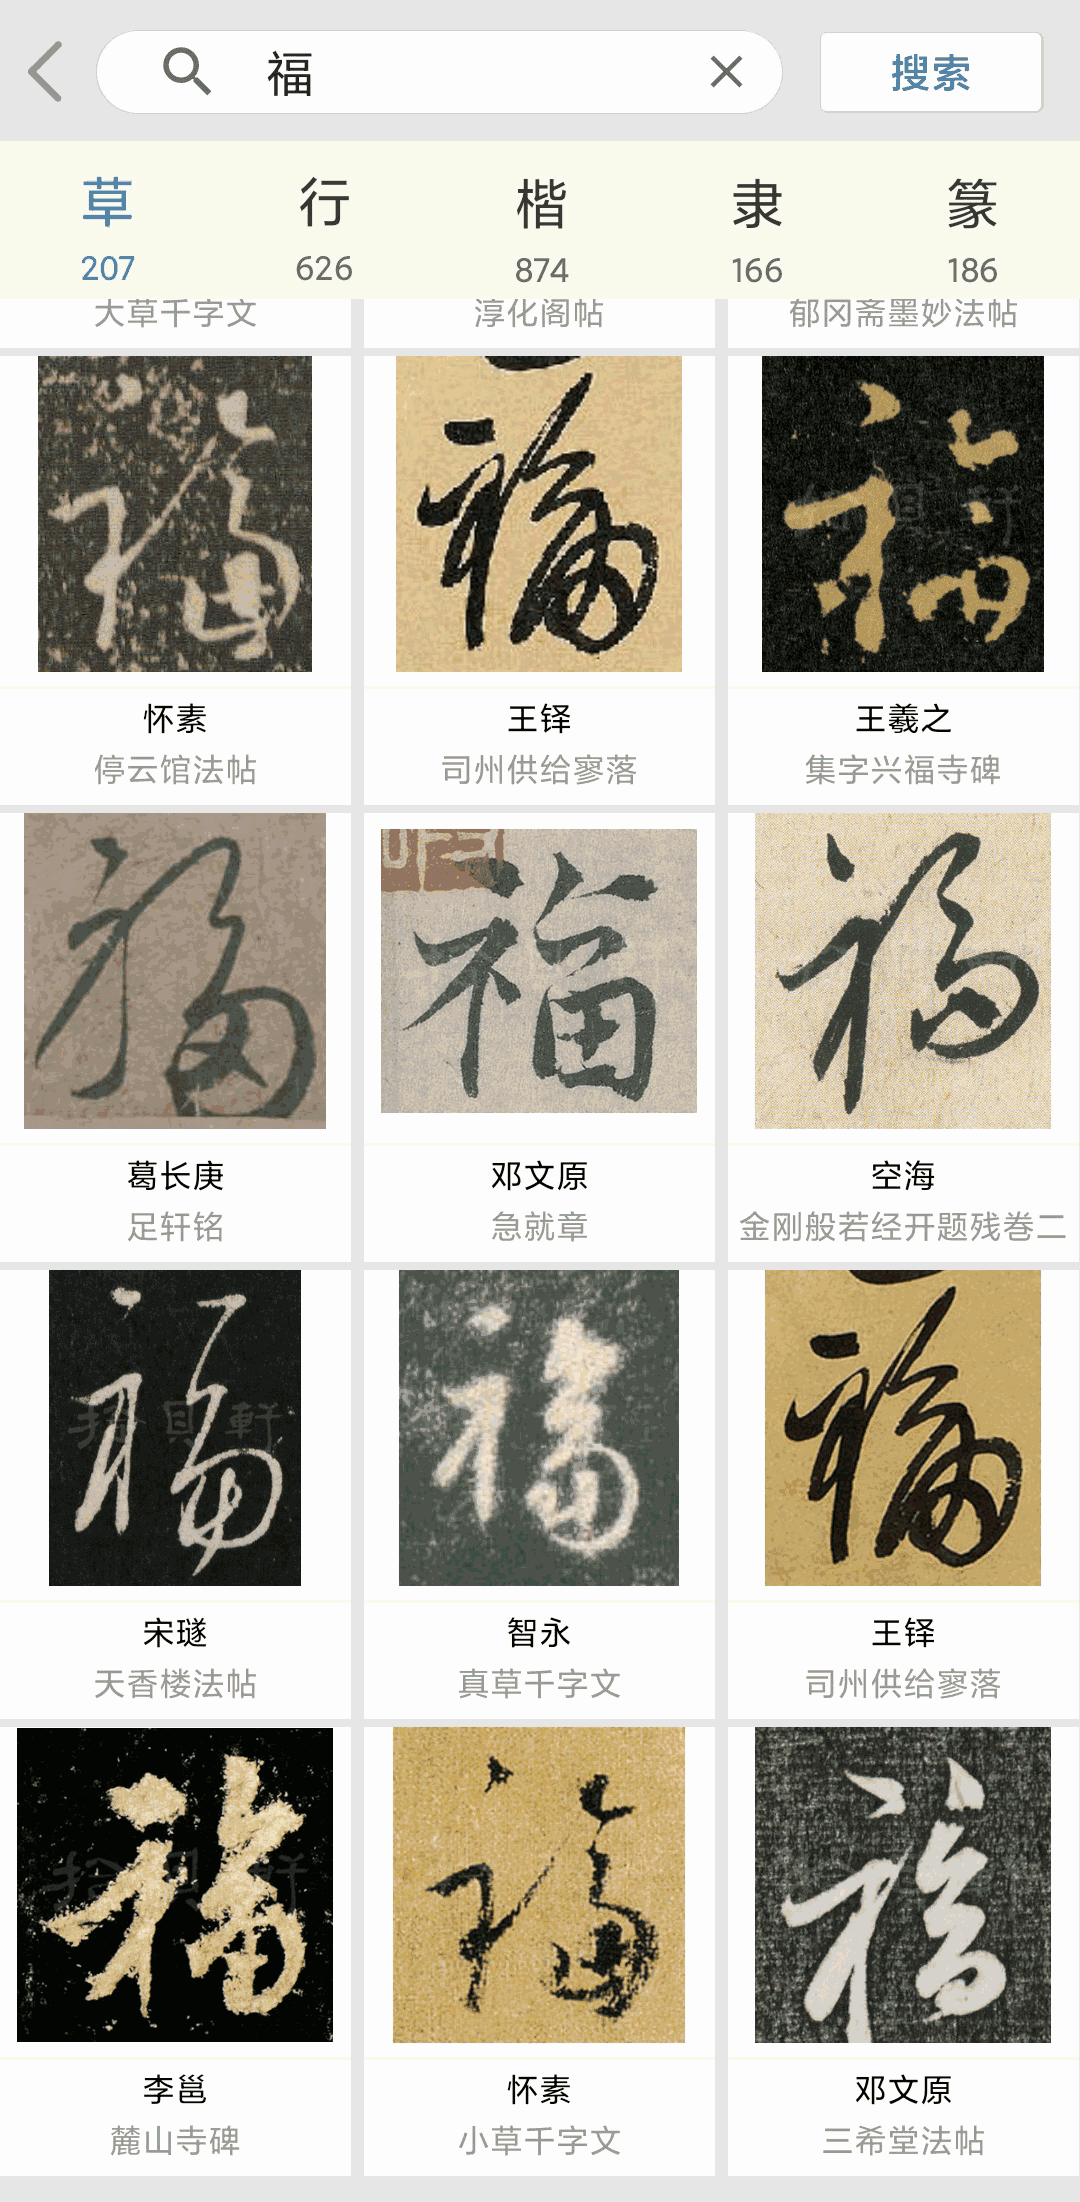 福
搜索
草 行 楷 隶 篆
207 626 874 166 186
大草千字文 淳化阁帖 郁冈斋墨妙法帖
福 福 福
怀素 王铎 王羲之
停云馆法帖 司州供给寥落 集字兴福寺碑
福 福 福
葛长庚 邓文原 空海
足轩铭 急就章 金刚般若经开题残卷二
福 福 福
宋璲 智永 王铎
天香楼法帖 真草千字文 司州供给寥落
福 福 福
李邕 怀素 邓文原
麓山寺碑 小草千字文 三希堂法帖